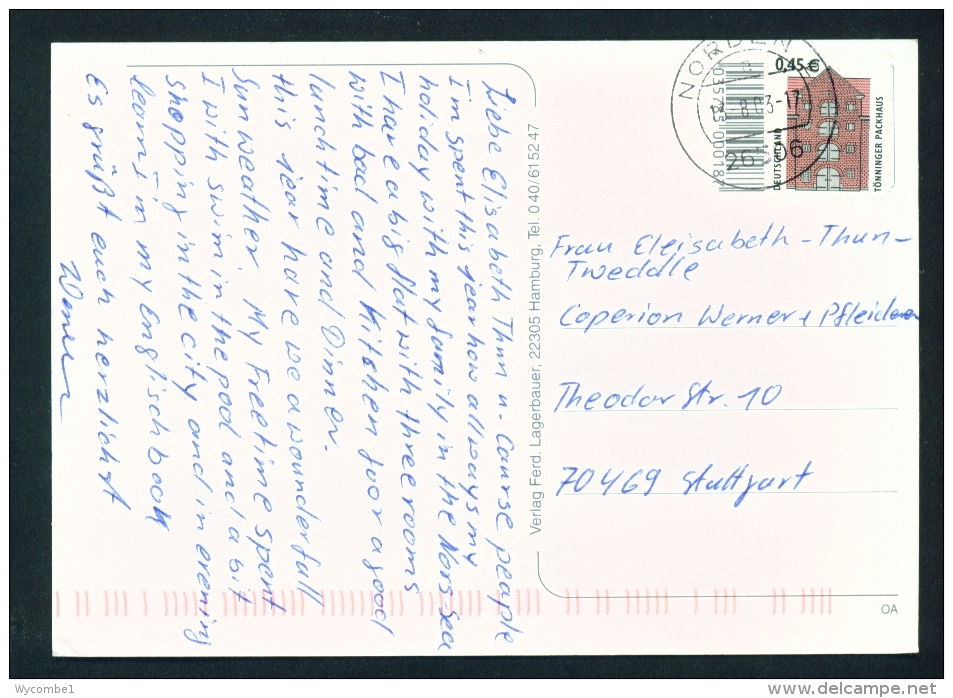 Liebe Elisabeth Thun u. Caurse peaple
I'm spent this jear how allways my
holiday with my family in the Nors-Sea
I have a big flat with three rooms
with bad and Kitshen for a good
lunchtime and Dinner.
this jear have we a wounderfull
Sunweather My Freetime spent
I with swim in the pool and a bit
shopping in the city and in evening
learni in my englisch book
Es grüßt euch herzlichst
Werner
Verlag Ferd. Lagerbauer, 22305 Hamburg, Tel. 0 40/6 15 2 47
NORDEN
8.03-17
26506
0,45 €
DEUTSCHLAND
TÖNNINGER PACKHAUS
Frau Eleisabeth-Thun-
Tweddle
Coperion Werner + Pfleiderer
Theodorstr. 10
70469 Stuttgart
OA
Wycombe1
www.delcampe.net